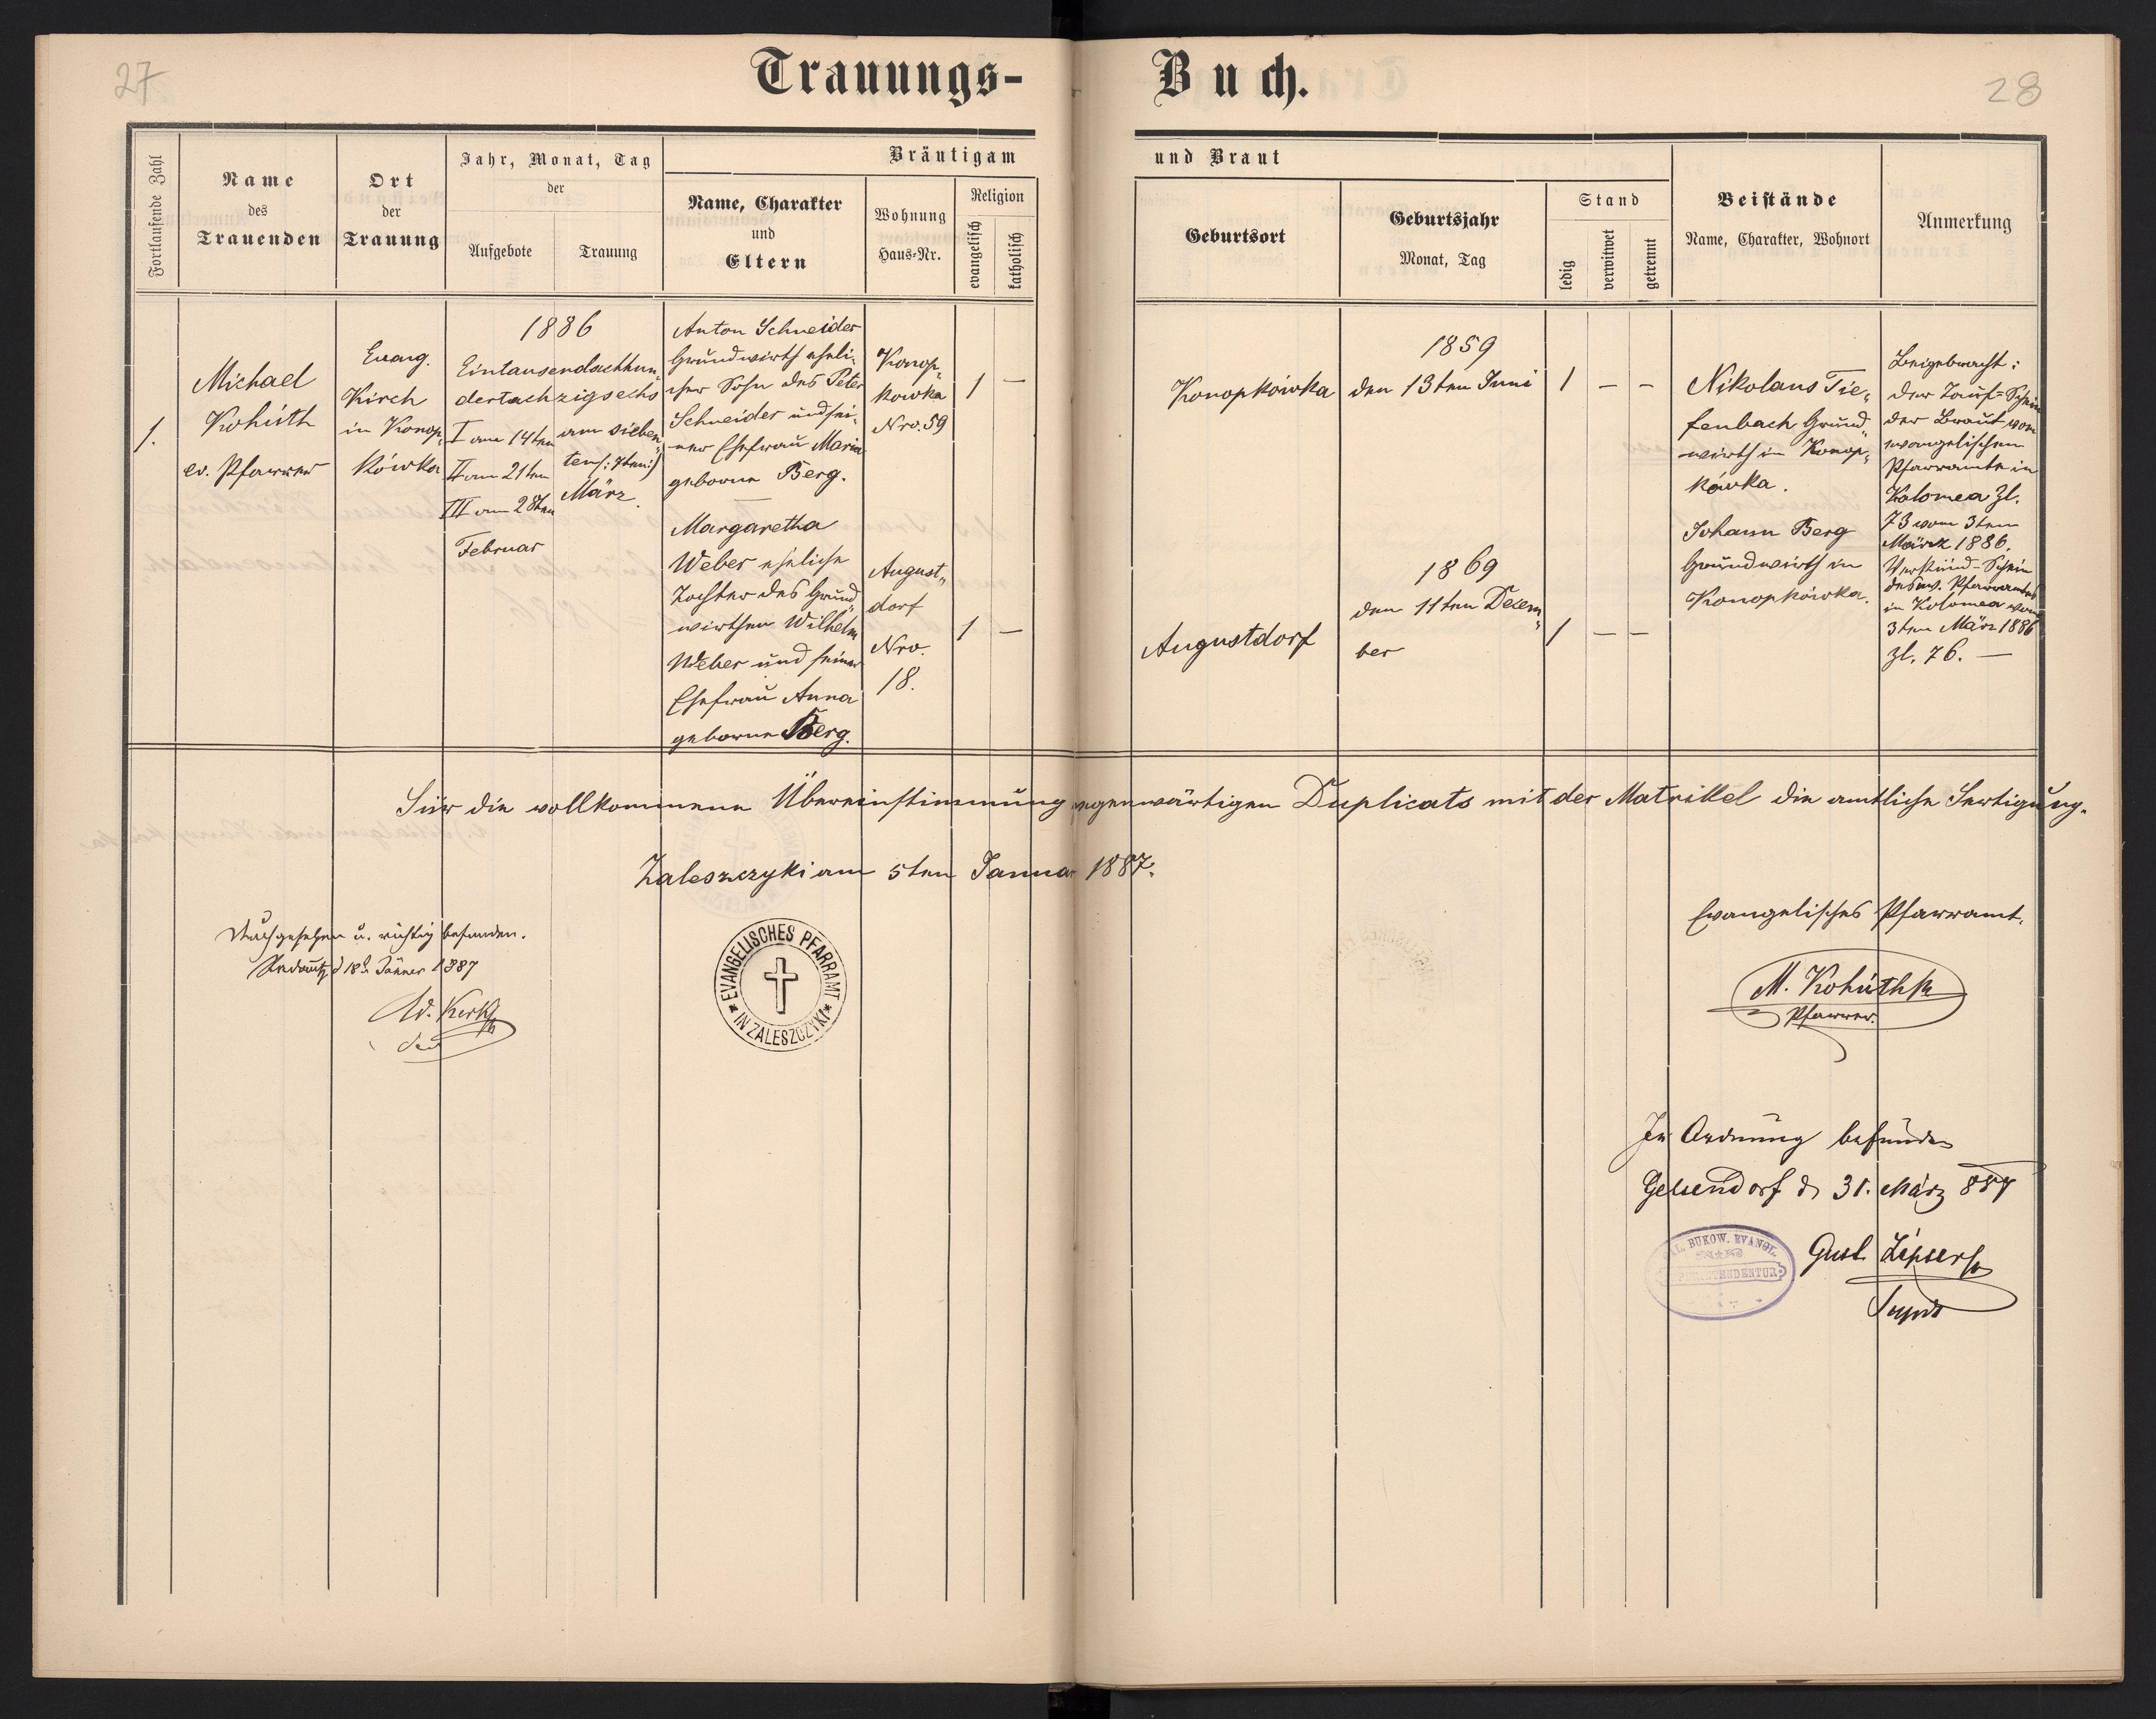 27
28
Trauungs-Buch.
Fortlaufende Zahl
Name
des
Trauenden
Ort
der
Trauung
Jahr, Monat, Tag
der
Aufgebote
Trauung
Bräutigam und Braut
Name, Charakter
und
Eltern
Wohnung
Haus-Nr.
Religion
evangelisch
katholisch
Geburtsort
Geburtsjahr
Monat, Tag
Stand
ledig
verwitwet
getrennt
Beistände
Name, Charakter, Wohnort
Anmerkung
1.
Michael
Kohúth
ev. Pfarrer
Evang.
Kirch
in Konop„
kówka
1886
Eintausendachthun„
dertachzigsechs
I am 14ten
II am 21ten
III am 28ten
Februar
am sieben„
ten (: 7ten :)
März.
Anton Schneider
Grundwirth eheli-
cher Sohn des Peter
Schneider und sei-
ner Ehefrau Maria
geborne Berg.
Konop„
kowka
Nro. 59
1 —
Konopkówka
1859
den 13ten Juni
1 — —
Margaretha
Weber eheliche
Tochter des Grund„
wirthen Wilhelm
Weber und seiner
Ehefrau Anna
geborne Berg.
August„
dorf
Nro.
18.
1 —
Augustdorf
1869
den 11ten Decem„
ber
1 — —
Nikolaus Tie„
fenbach Grund„
wirth in Konop„
kówka.
Johann Berg
Grundwirth in
Konopkówka.
Beigebracht:
der Tauf-Schein
der Braut vom
evangelischen
Pfarramte in
Kolomea Zl.
73 vom 3ten
März 1886.
Verkünd-Schein
des ev. Pfarramtes
in Kolomea vom
3ten März 1886
Zl. 76. —
Für die vollkommene Übereinstimmung gegenwärtigen Duplicats mit der Matrikel die amtliche Fertigung.
Zaleszczyki am 5ten Januar 1887.
Evangelisches Pfarramt.
M. Kohúth
Pfarrer.
EVANGELISCHES PFARRAMT
IN ZALESZCZYKI
Nachgesehen u. richtig befunden.
Radautz d 18t Jänner 1887
In Ordnung befunden
Gelsendorf d. 31. März 887
GAL. BUKOW. EVANGL.
SUPERINTENDENTUR
Gust. Zipser